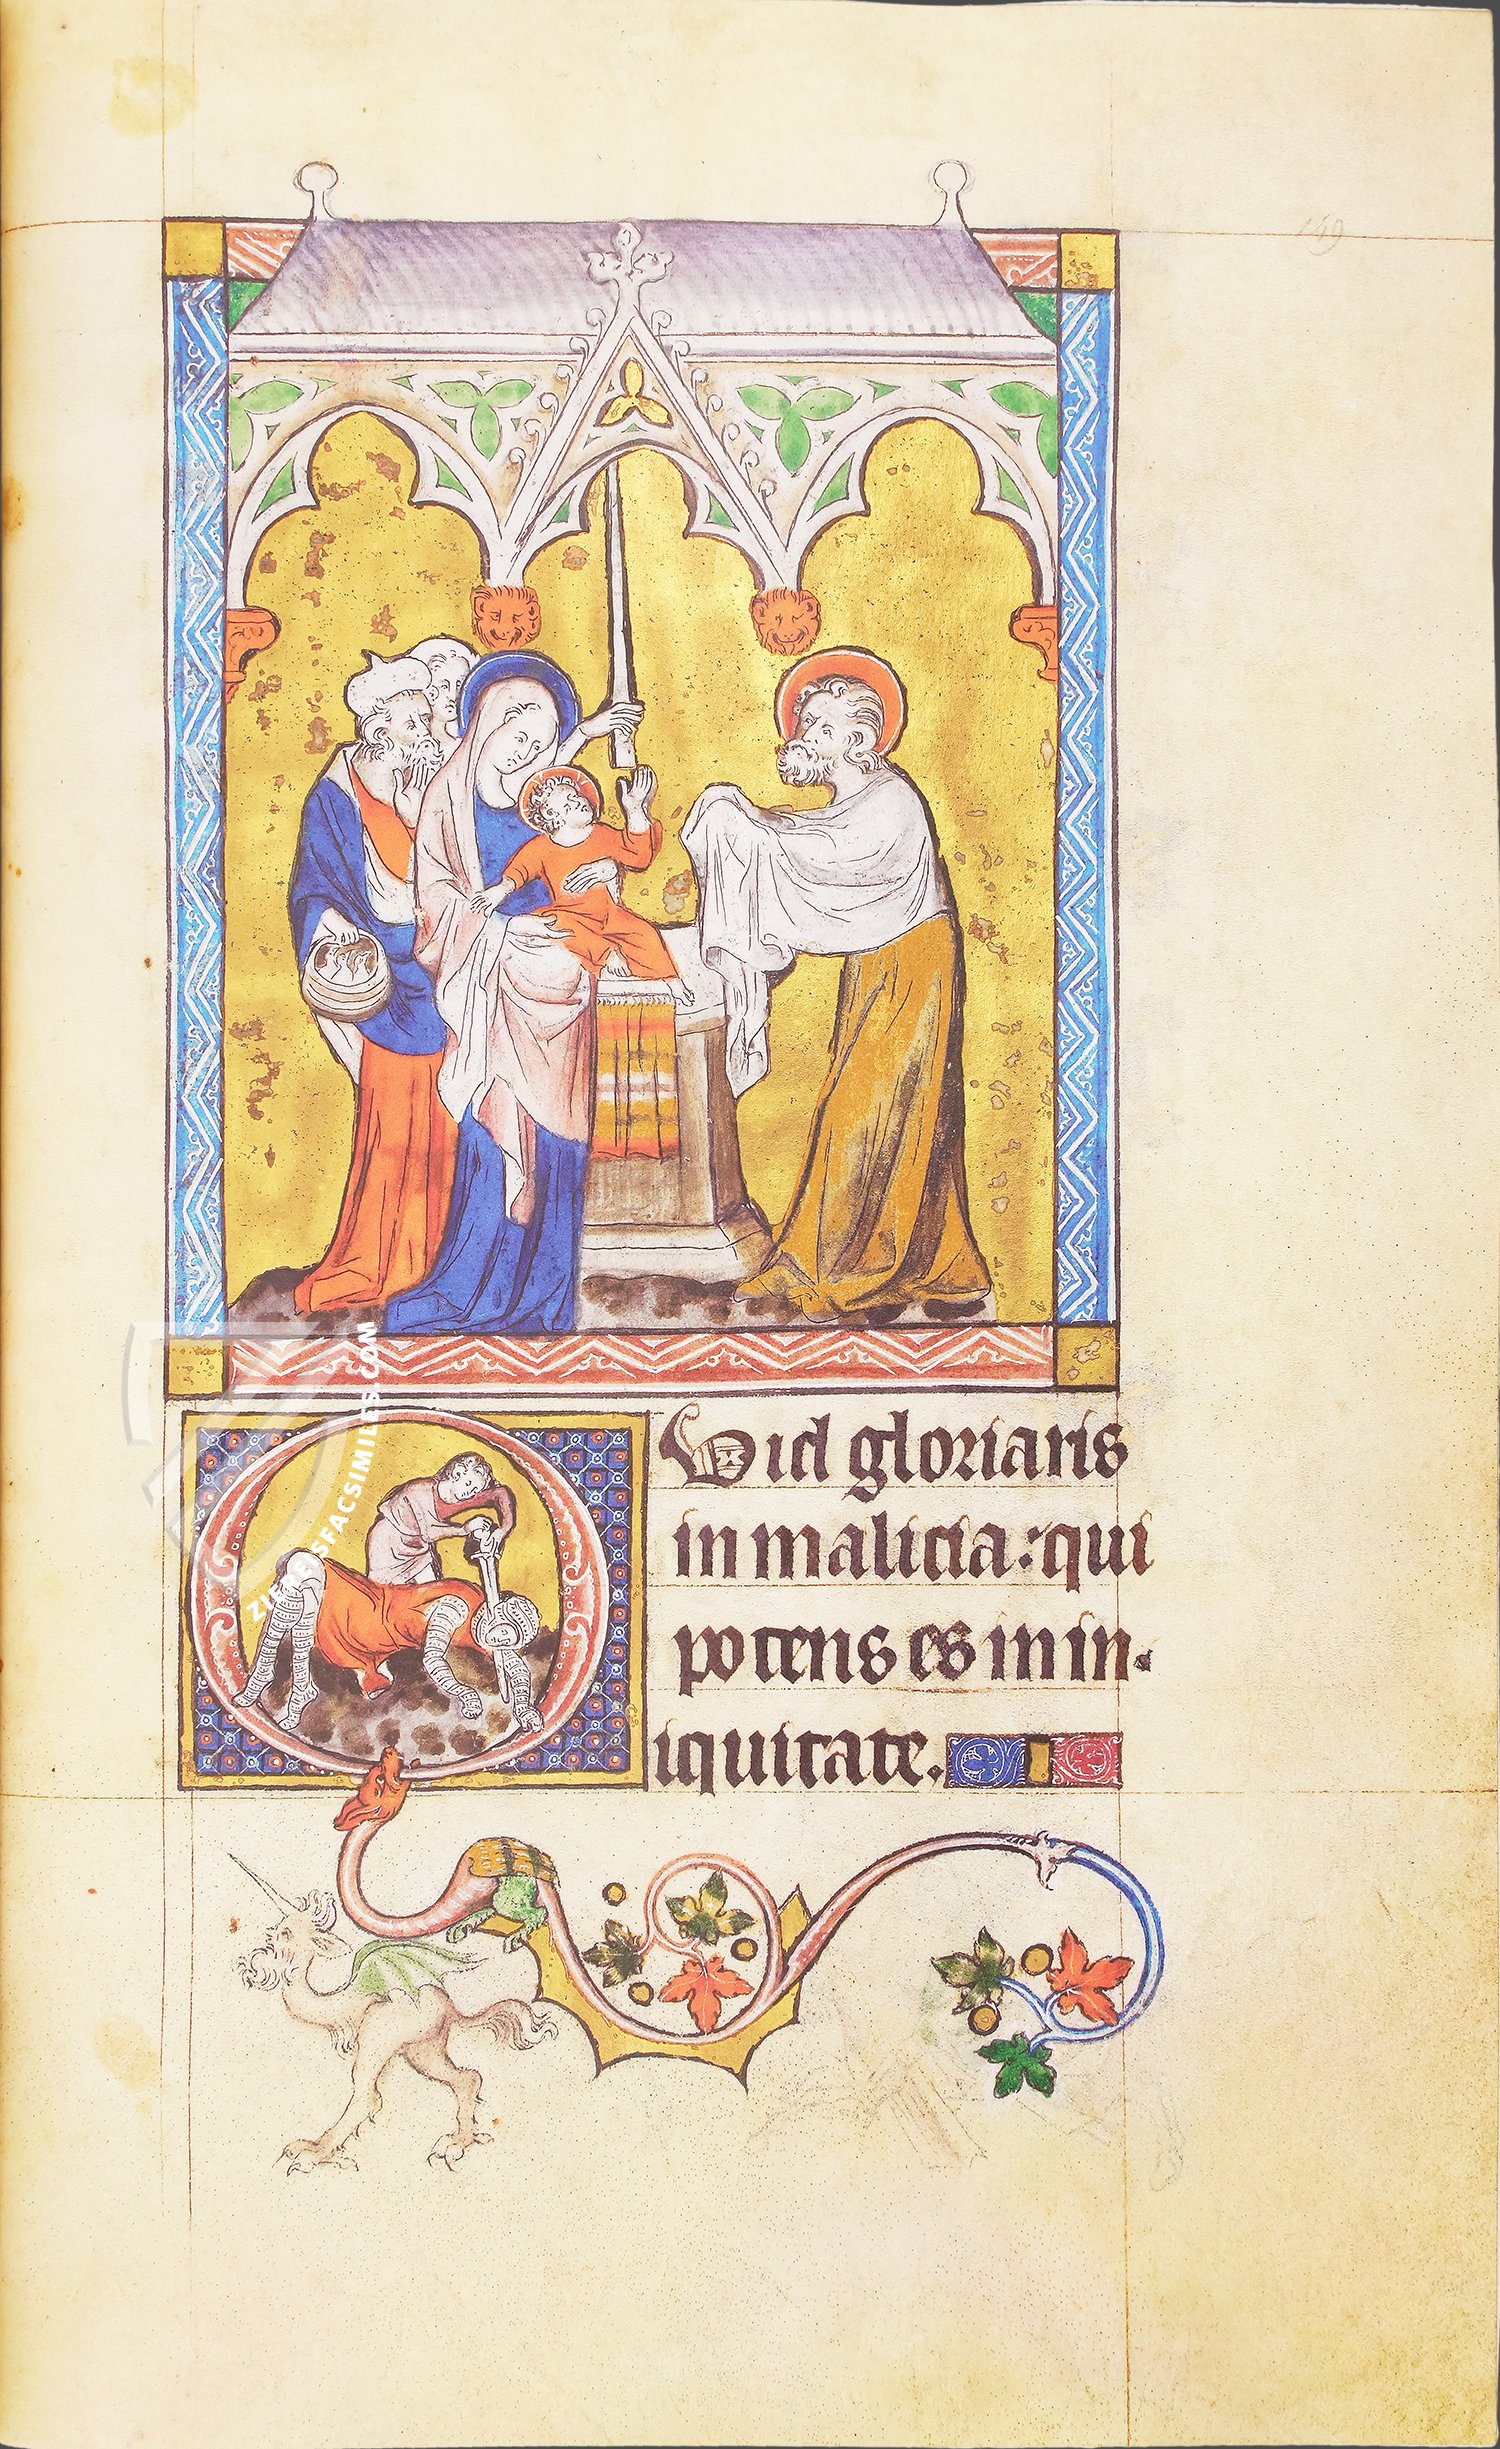 149
Quid gloriaris
in malicia: qui
potens es in in-
iquitate.
ZIEREISFACSIMILES.COM